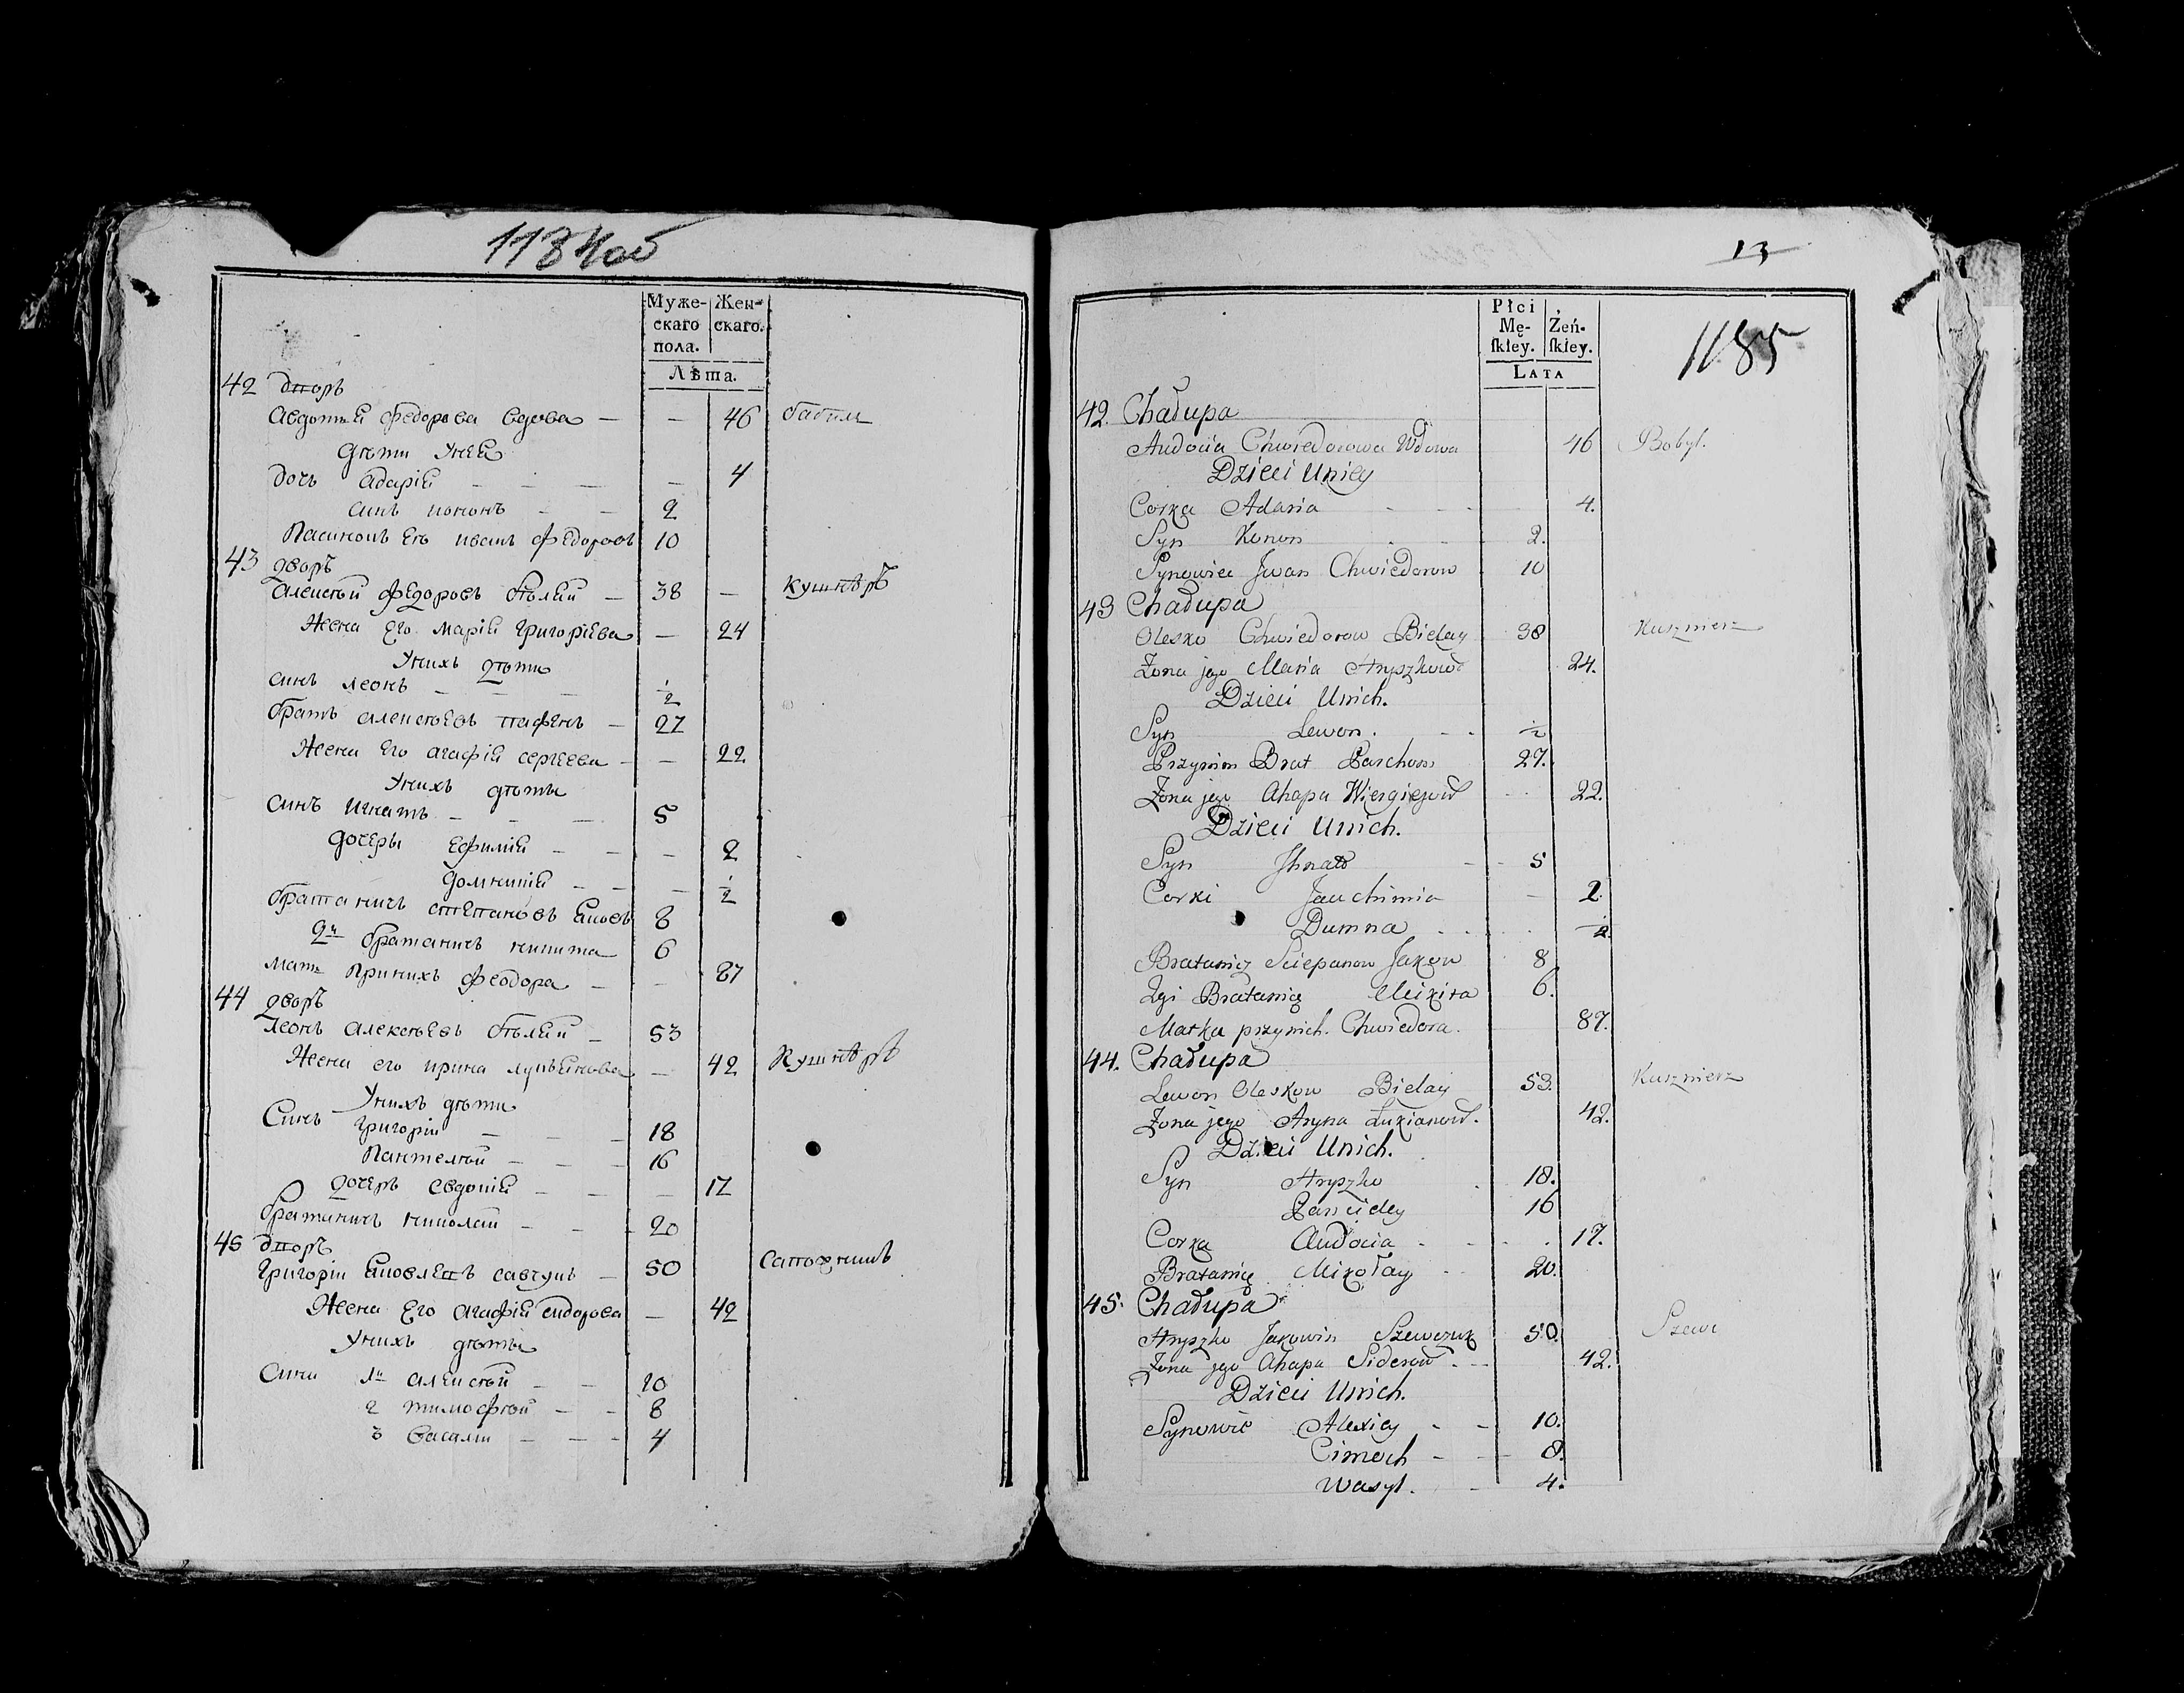 Муже-
скаго
пола.
Жен-
скаго.
Лѣта.
42 дворъ
Авдотья федорова вдова — — 46
дѣти Унея
дочь адарія — — — — 4
синъ кононъ — — 2
Пасинокъ Его иванъ федоровъ 10
43 дворъ
алексѣй федоровъ бѣлий — 38 — кушнѣръ
Жена Его марія григоріева — 24
Унихъ дѣти
синъ леонъ — — — ½
братъ алексѣевъ парфенъ — 27
Жена Его агафія сергѣева — — 22
Унихъ дѣти
синъ игнатъ — — — 5
дочеры ефимия — — — 2
домникия — — — ½
братаничъ степановъ яковъ 8
2й братаничъ никита 6
мать Принихъ феодора — — 87
44 дворъ
леонъ алексѣевъ бѣлий — 53
Жена его ирина лукьянова — 42 Кушнѣръ
Унихъ дѣти
Синъ григорій — — — 18
Пантелѣй — — — 16
дочеръ евдокія — — — 17
братаничъ николай — — 20
45 дворъ
григорій яковлевъ савчукъ — 50 сапожникъ
Жена Его агафія сидорова — 42
Унихъ дѣти
Сини 1й алексѣй — — 10
2 тимофѣй — — 8
3 василій — — — 4
13
1185
Płci
Mę-
skiey.
Żeń-
skiey.
LATA
42. Chałupa
Audocia Chwiedorowa Wdowa 46 Bobyl.
Dzieci Uniey
Corka Adaria - - - 4.
Syn Konon - - 2.
Synowiec Jwan Chwiedorow 10
43 Chałupa
Olesko Chwiedorow Bielay 38 Kusznierz
Żona jego Maria Hryszkow 24.
Dzieci Unich.
Syn Lewon. - - ½
Przynim Brat Parchom 27.
Żona jego Ahapa 22.
Dzieci Unich.
Syn Jhnat - - 5
Corki Jauchimia - 2.
Dumna - - - ½
Bratanicz Sciepanow Jakow 8
2gi Bratanicz Mikita 6.
Matka przynich. Chwiedora. 87.
44. Chałupa
Lewon Oleskow Bielay 53. Kusznierz
Żona jego Aryna Łukianow. 42.
Dzieci Unich.
Syn Hryszko 18.
Panciley 16
Corka Audocia - - - 17.
Bratanicz Mikołay - - 20.
45. Chałupa
Hryszko Jakowin Szewczuk 50. Szewc
Żona jego Ahapa Siderow - - - 42.
Dzieci Unich.
Synowie Alexiey - - 10.
Cimoch - - 8.
Wasyl. - 4.